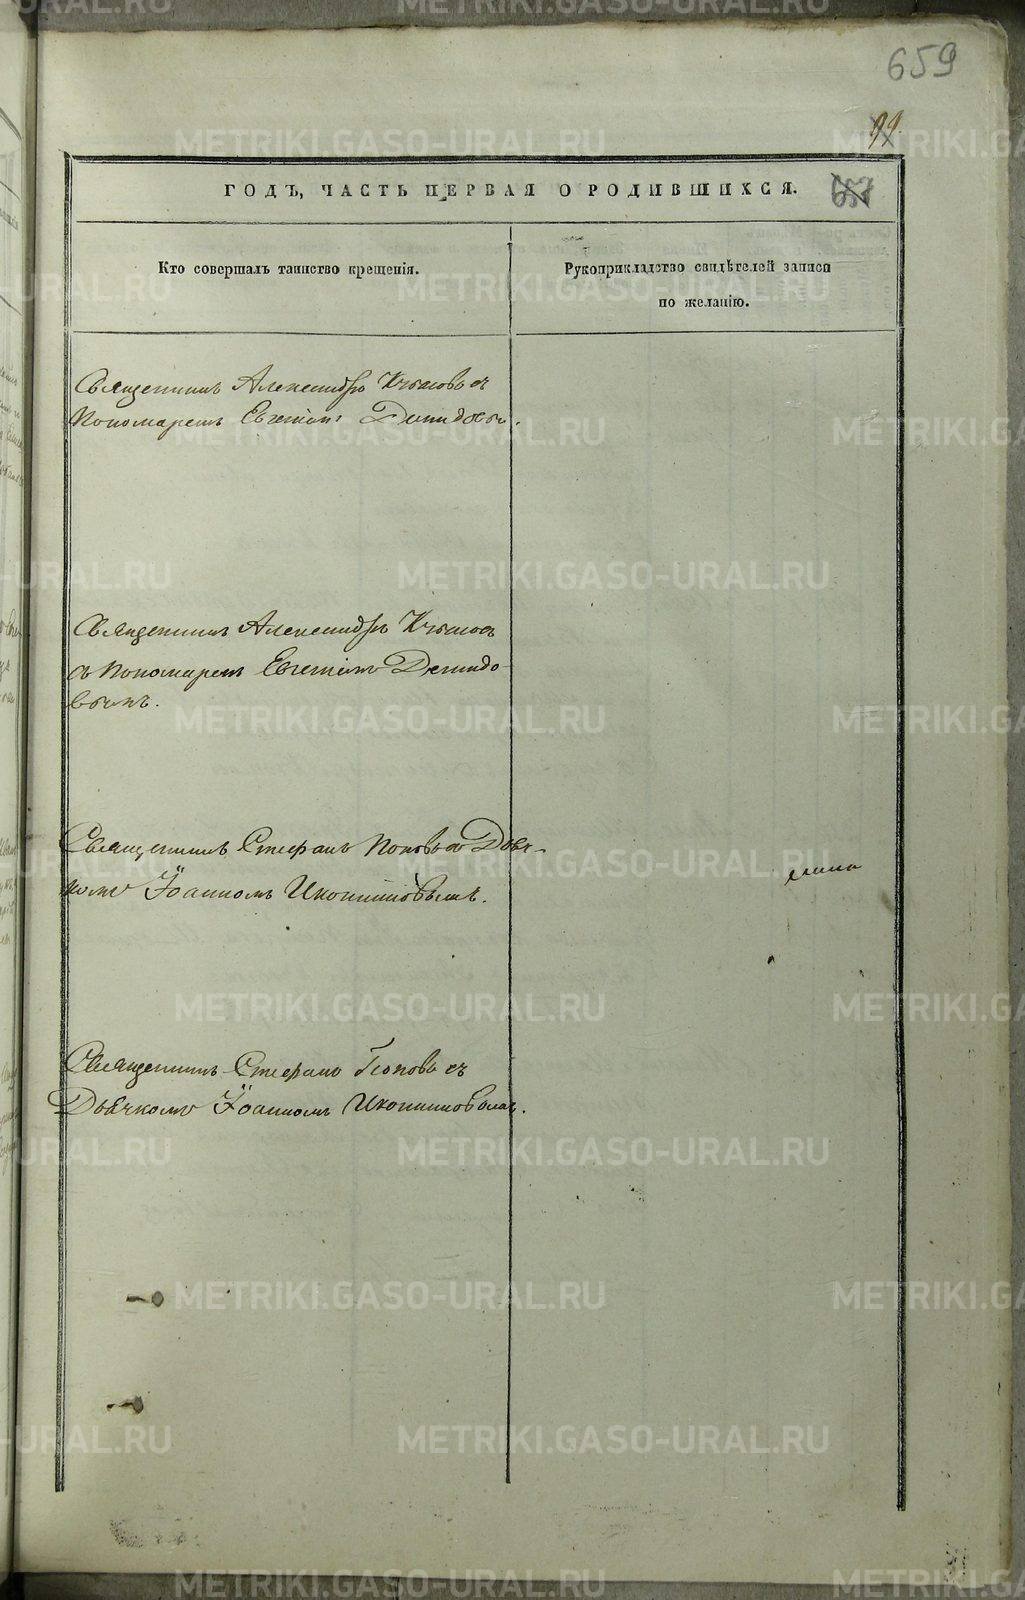 659
99.
ГОДЪ, ЧАСТЬ ПЕРВАЯ О РОДИВШИХСЯ.
657
Кто совершалъ таинство крещенія.
Рукоприкладство свидѣтелей записи
по желанію.
Священникъ Александръ съ
Пономаремъ Евгеніемъ Демидовымъ.
Священникъ Александръ
съ Пономаремъ Евгеніемъ Демидо-
вымъ.
Священникъ Стефанъ Поповъ съ Дьяч-
комъ Іоанномъ Иконниковымъ.
Священникъ Стефанъ Поповъ съ
Дьячкомъ Іоанномъ Иконниковымъ.
METRIKI.GASO-URAL.RU